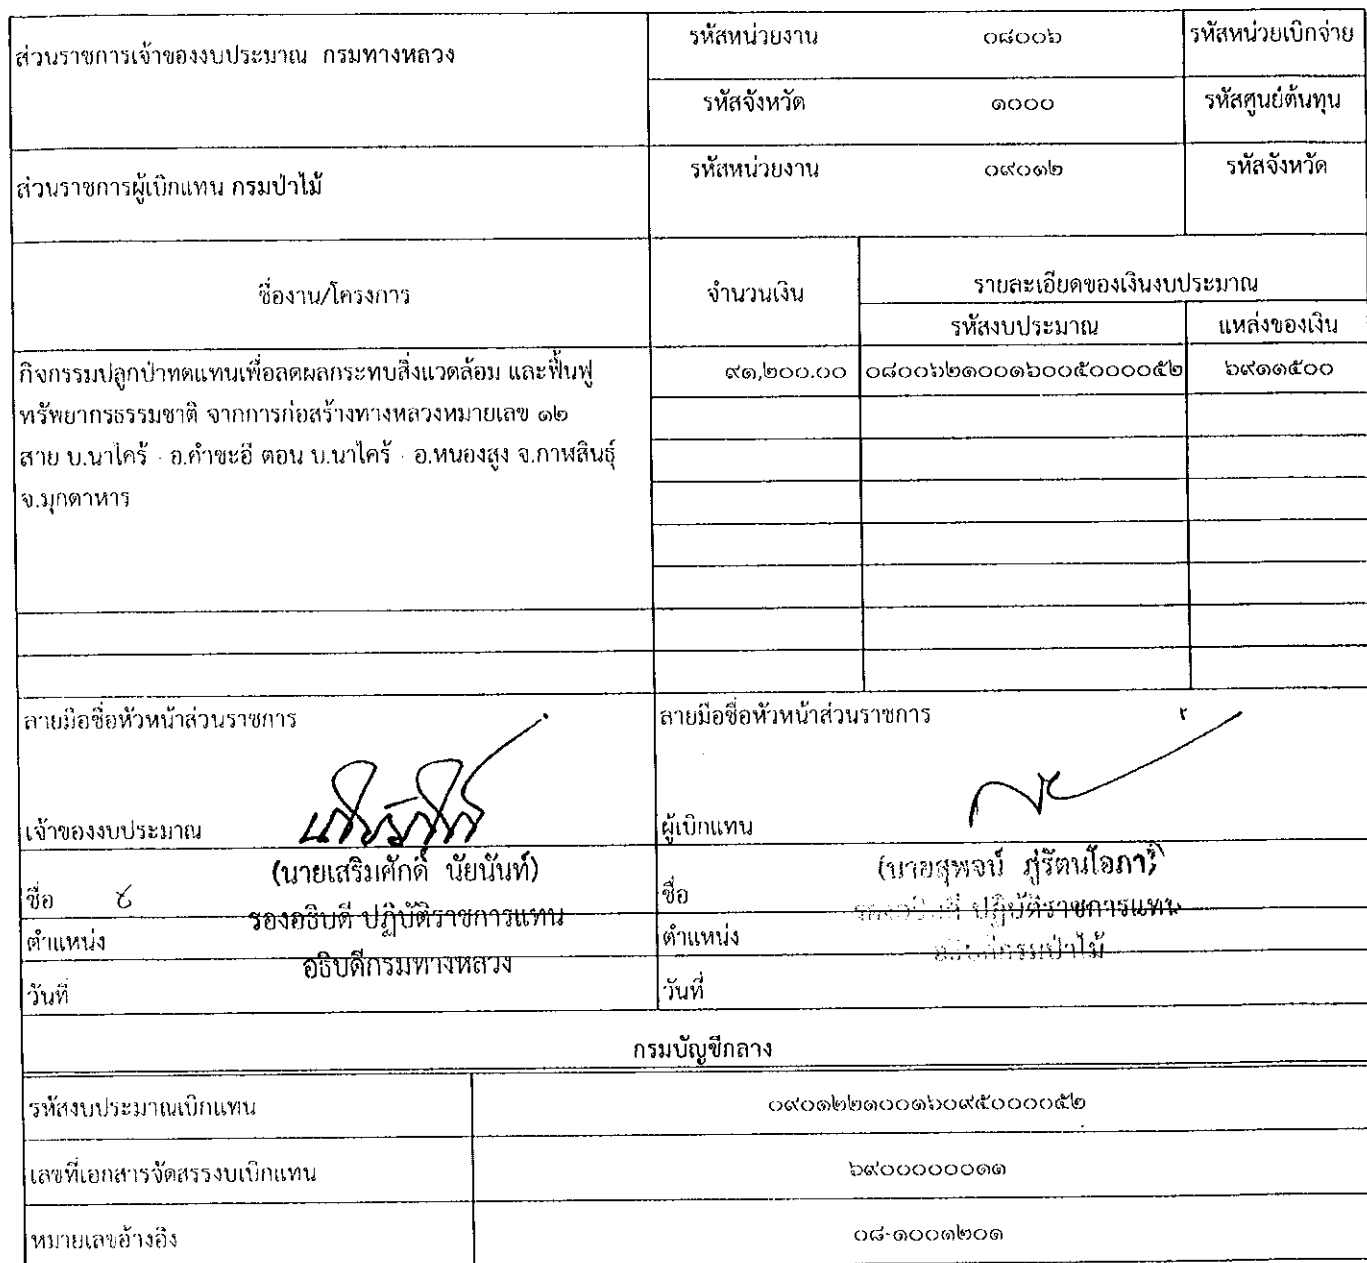 ส่วนราชการเจ้าของงบประมาณ กรมทางหลวง
รหัสหน่วยงาน ๐๘๐๐๖ รหัสหน่วยเบิกจ่าย
รหัสจังหวัด ๑๐๐๐ รหัสศูนย์ต้นทุน
ส่วนราชการผู้เบิกแทน กรมป่าไม้
รหัสหน่วยงาน ๐๙๐๑๒ รหัสจังหวัด
ชื่องาน/โครงการ จำนวนเงิน รายละเอียดของเงินงบประมาณ
รหัสงบประมาณ แหล่งของเงิน
กิจกรรมปลูกป่าทดแทนเพื่อลดผลกระทบสิ่งแวดล้อม และฟื้นฟู ๙๑,๒๐๐.๐๐ ๐๘๐๐๖๒๑๐๐๑๖๐๐๕๐๐๐๐๕๒ ๖๙๑๑๕๐๐
ทรัพยากรธรรมชาติ จากการก่อสร้างทางหลวงหมายเลข ๑๒
สาย บ.นาไคร้ - อ.คำชะอี ตอน บ.นาไคร้ - อ.หนองสูง จ.กาฬสินธุ์
จ.มุกดาหาร
ลายมือชื่อหัวหน้าส่วนราชการ
เจ้าของงบประมาณ
(นายเสริมศักดิ์ นัยนันท์)
ชื่อ
รองอธิบดี ปฏิบัติราชการแทน
ตำแหน่ง
อธิบดีกรมทางหลวง
วันที่
ลายมือชื่อหัวหน้าส่วนราชการ
ผู้เบิกแทน
(นายสุพจน์ ภู่รัตนโอภา)
ชื่อ
รองอธิบดี ปฏิบัติราชการแทน
ตำแหน่ง
อธิบดีกรมป่าไม้
วันที่
กรมบัญชีกลาง
รหัสงบประมาณเบิกแทน ๐๙๐๑๒๒๑๐๐๑๖๐๙๕๐๐๐๐๕๒
เลขที่เอกสารจัดสรรงบเบิกแทน ๖๙๐๐๐๐๐๐๑๑
หมายเลขอ้างอิง ๐๘-๑๐๐๑๒๐๑